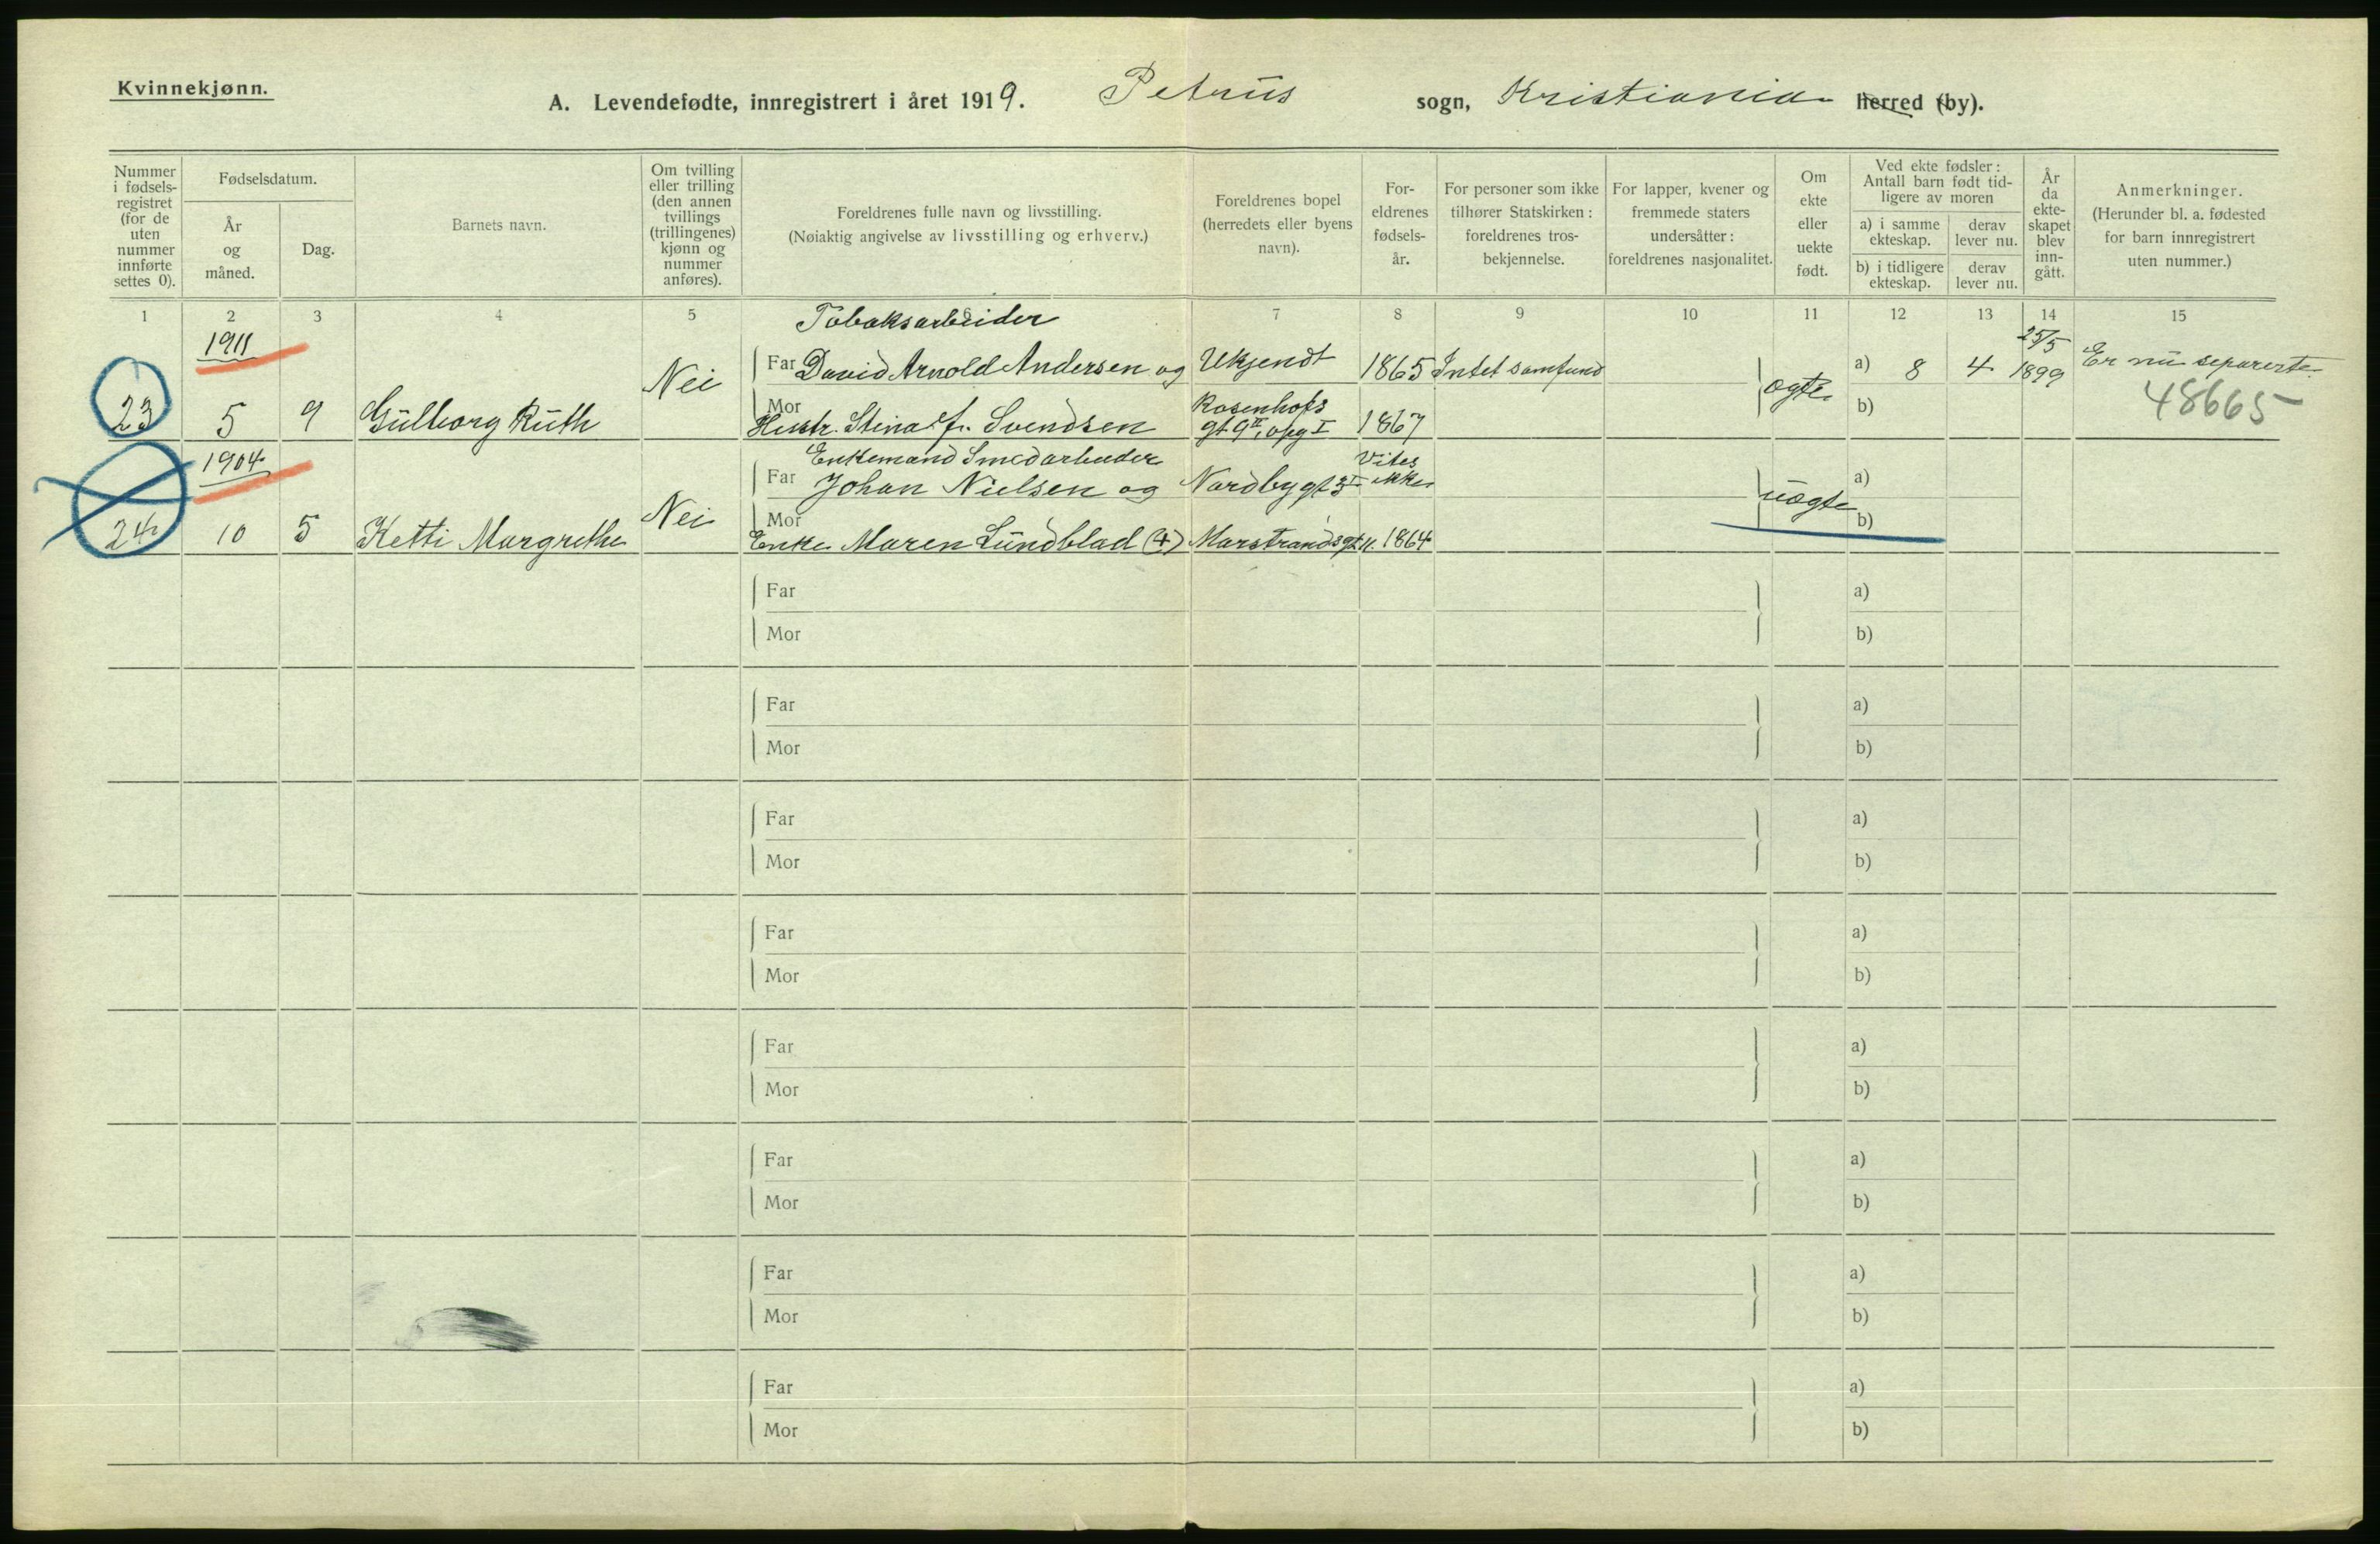 Kvinnekjønn.
A. Levendefødte, innregistrert i året 1919. Petrus sogn, Kristiania herred (by).
Nummer i fødsels-registret (for de uten nummer innførte settes 0).
Fødselsdatum.
År og måned.
Dag.
Barnets navn.
Om tvilling eller trilling (den annen tvillings (trillingenes) kjønn og nummer anføres).
Foreldrenes fulle navn og livsstilling.
(Nøiaktig angivelse av livsstilling og erhverv.)
Foreldrenes bopel (herredets eller byens navn).
For-eldrenes fødsels-år.
For personer som ikke tilhører Statskirken: foreldrenes tros-bekjennelse.
For lapper, kvener og fremmede staters undersåtter: foreldrenes nasjonalitet.
Om ekte eller uekte født.
Ved ekte fødsler: Antall barn født tid-ligere av moren
a) i samme ekteskap.
derav lever nu.
b) i tidligere ekteskap.
derav lever nu.
År da ekte-skapet blev inn-gått.
Anmerkninger.
(Herunder bl. a. fødested for barn innregistrert uten nummer.)
1 2 3 4 5 6 7 8 9 10 11 12 13 14 15
1911
Tobaksarbeider
Far David Arnold Andersen og Ukjendt 1865 Intet samfund a) 8 4 25/5 1899 Er nu separerte
23 5 9 Gulborg Ruth Nei
Mor Hustr. Stina f. Svendsen Rosenhofs gt 9 II, opg I 1867 ægte b) 48665
1904
Enkemand Smedarbeider
Far Johan Nielsen og Nordbygt 3 I Vites ikke a)
24 10 5 Ketti Margrethe Nei
Mor Enke Maren Lundblad (4) Marstrandsgt 11. 1864 uægte b)
Far a)
Mor b)
Far a)
Mor b)
Far a)
Mor b)
Far a)
Mor b)
Far a)
Mor b)
Far a)
Mor b)
Far a)
Mor b)
Far a)
Mor b)